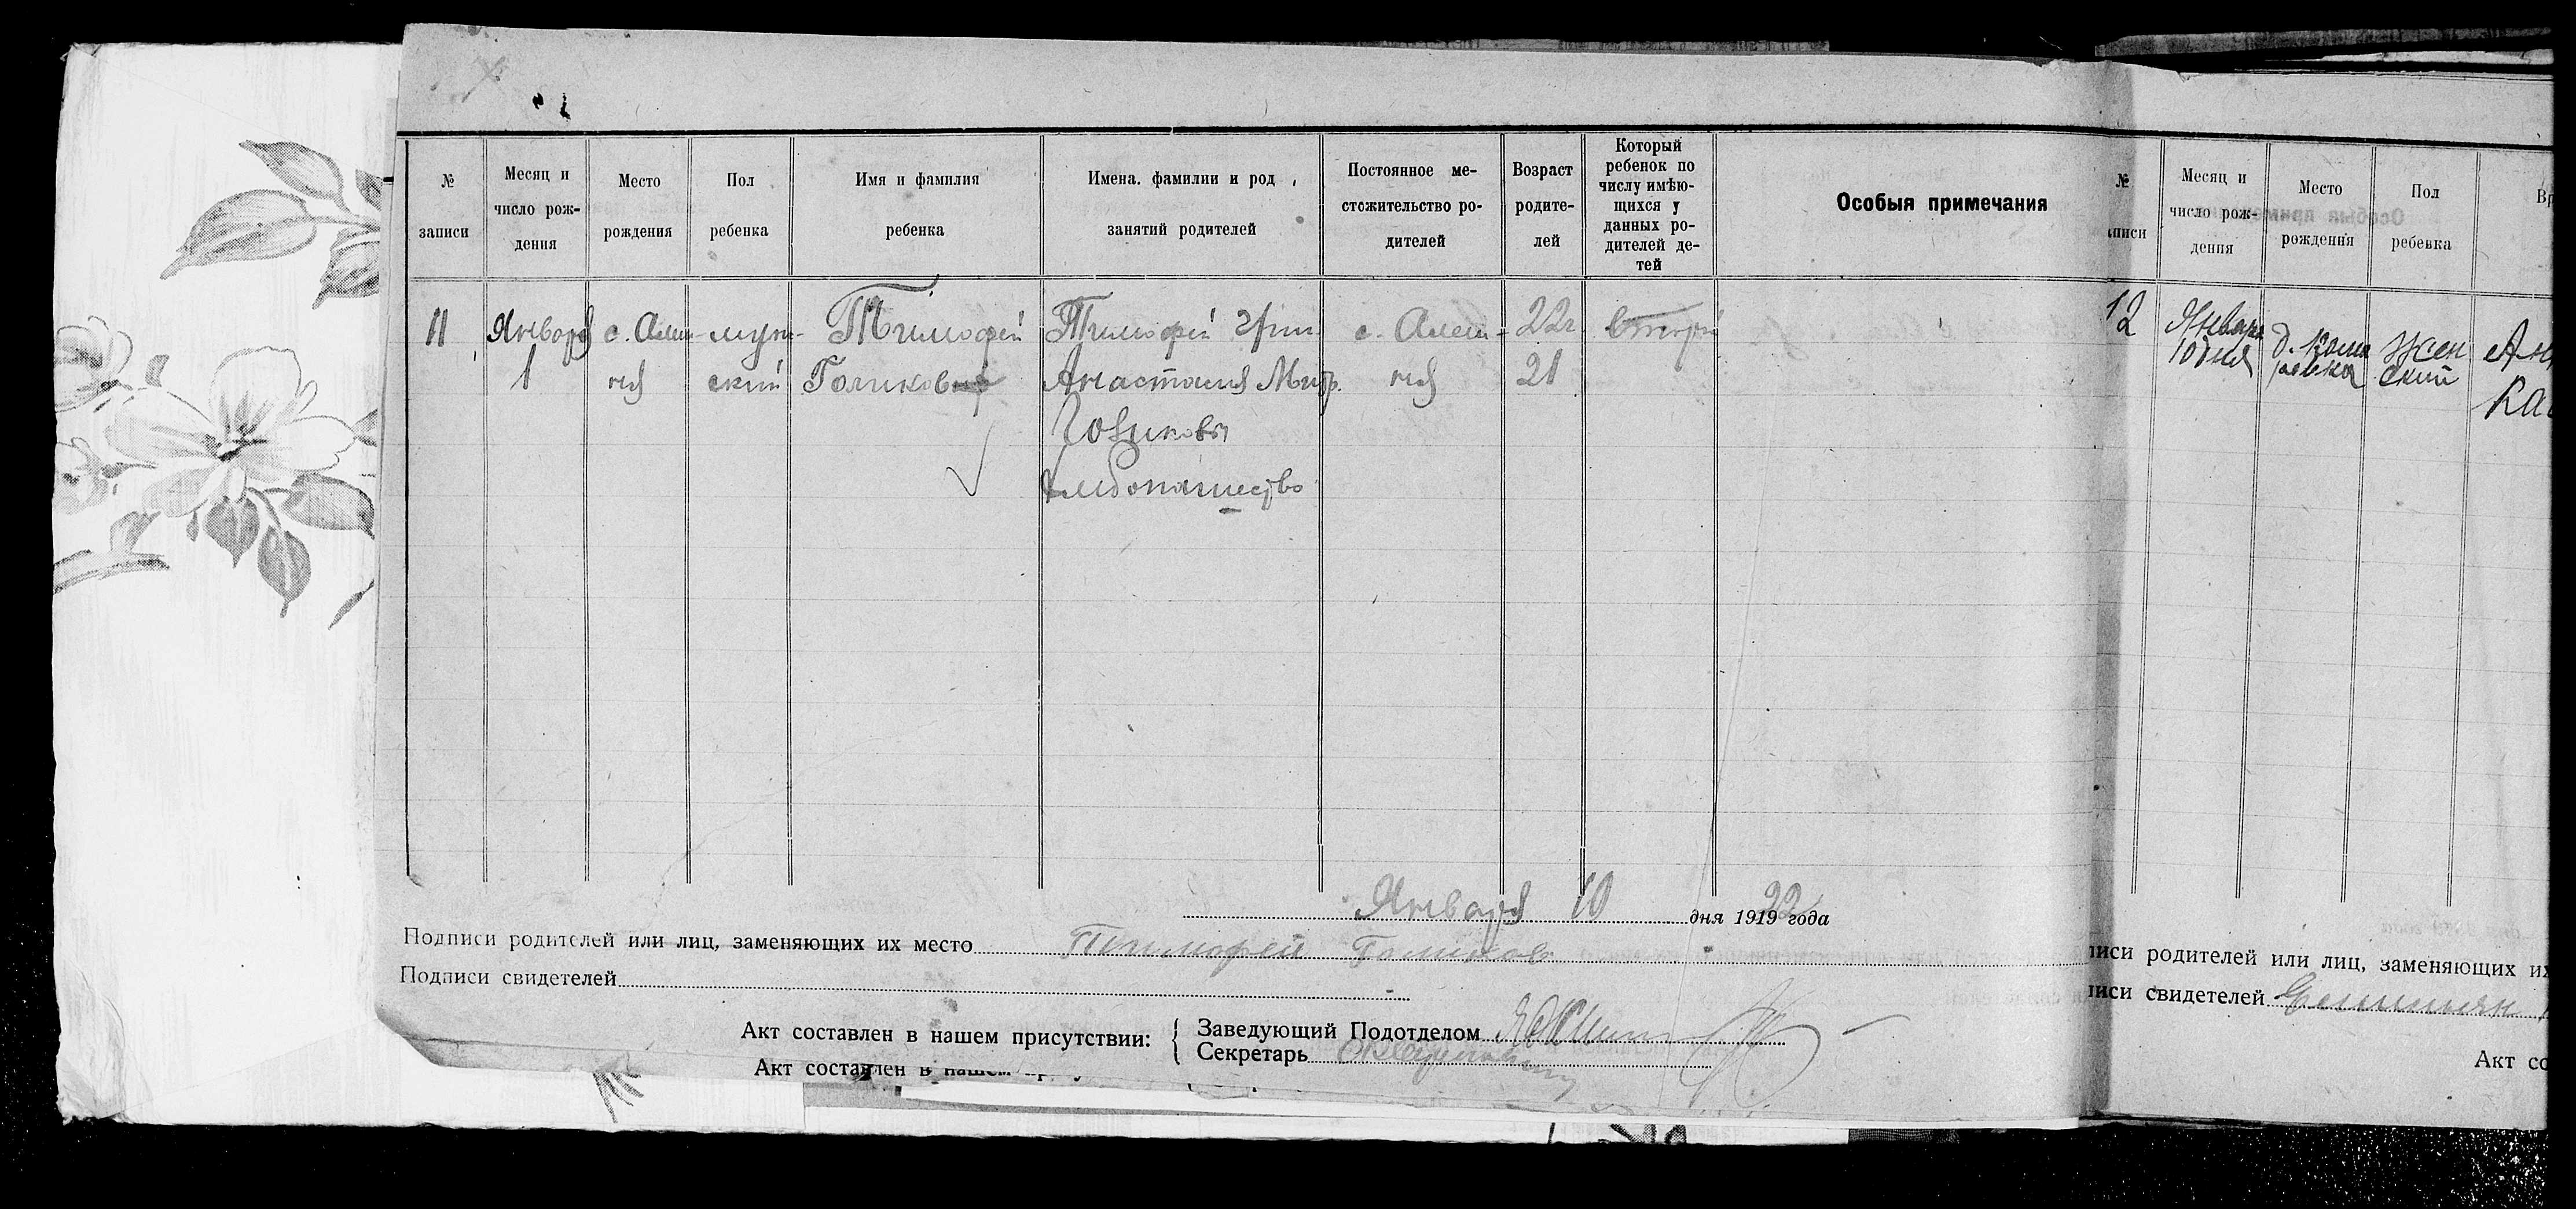 № записи
Месяц и число рождения
Место рождения
Пол ребенка
Имя и фамилия ребенка
Имена. фамилии и род занятий родителей
Постоянное местожительство родителей
Возраст родителей
Который ребенок по числу имѣющихся у данных родителей детей
Особыя примечания
11
Января
1
с. Алеш-
ня
муж-
ский
Тимофей
Голиков
Тимофей Григ.
Анастасия Митр.
Голиковы
Хлебопашество
с. Алеш-
ня
22 г
21
Второй
Января 10 дня 1919 года
22
Подписи родителей или лиц, заменяющих их место Тимофей Голиков
Подписи свидетелей
Акт составлен в нашем присутствии:
Заведующий Подотделом
Секретарь
Акт составлен в нашем
№
аписи
Месяц и
число рож-
дения
Место
рождения
Пол
ребенка
12
Января
10 дня
Жен
ский
иси родителей или лиц, заменяющих их
иси свидетелей
Акт со